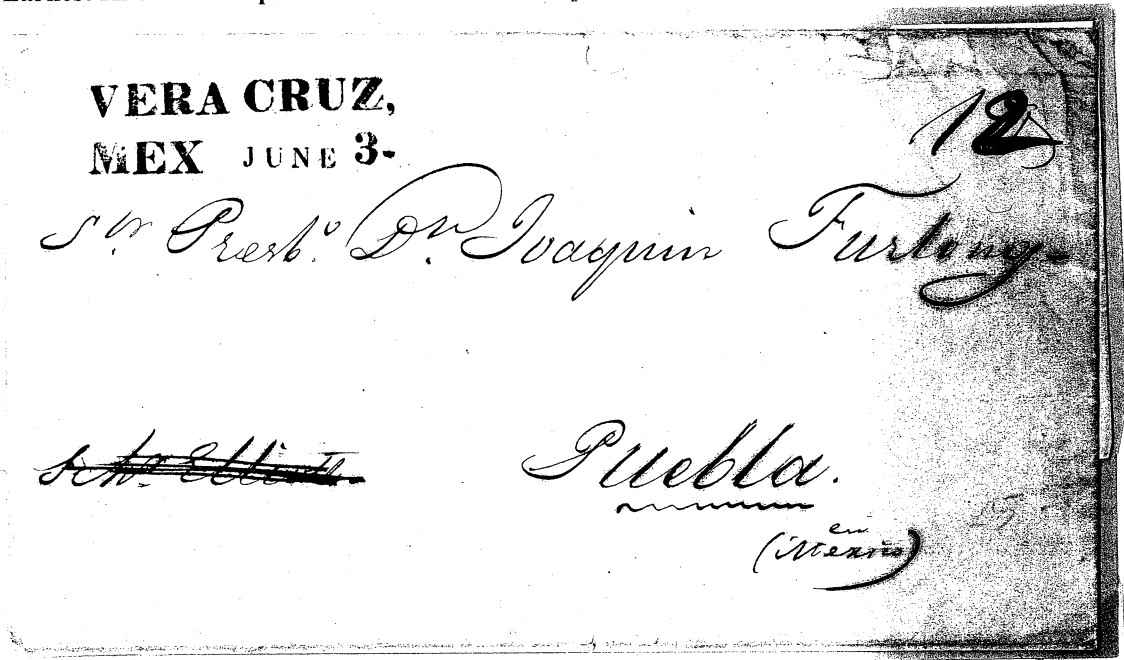 VERA CRUZ,
MEX JUNE 3-
12
Sor. Presbo. Dn. Joaquin Furlong.
Puebla.
en
(Mexico)